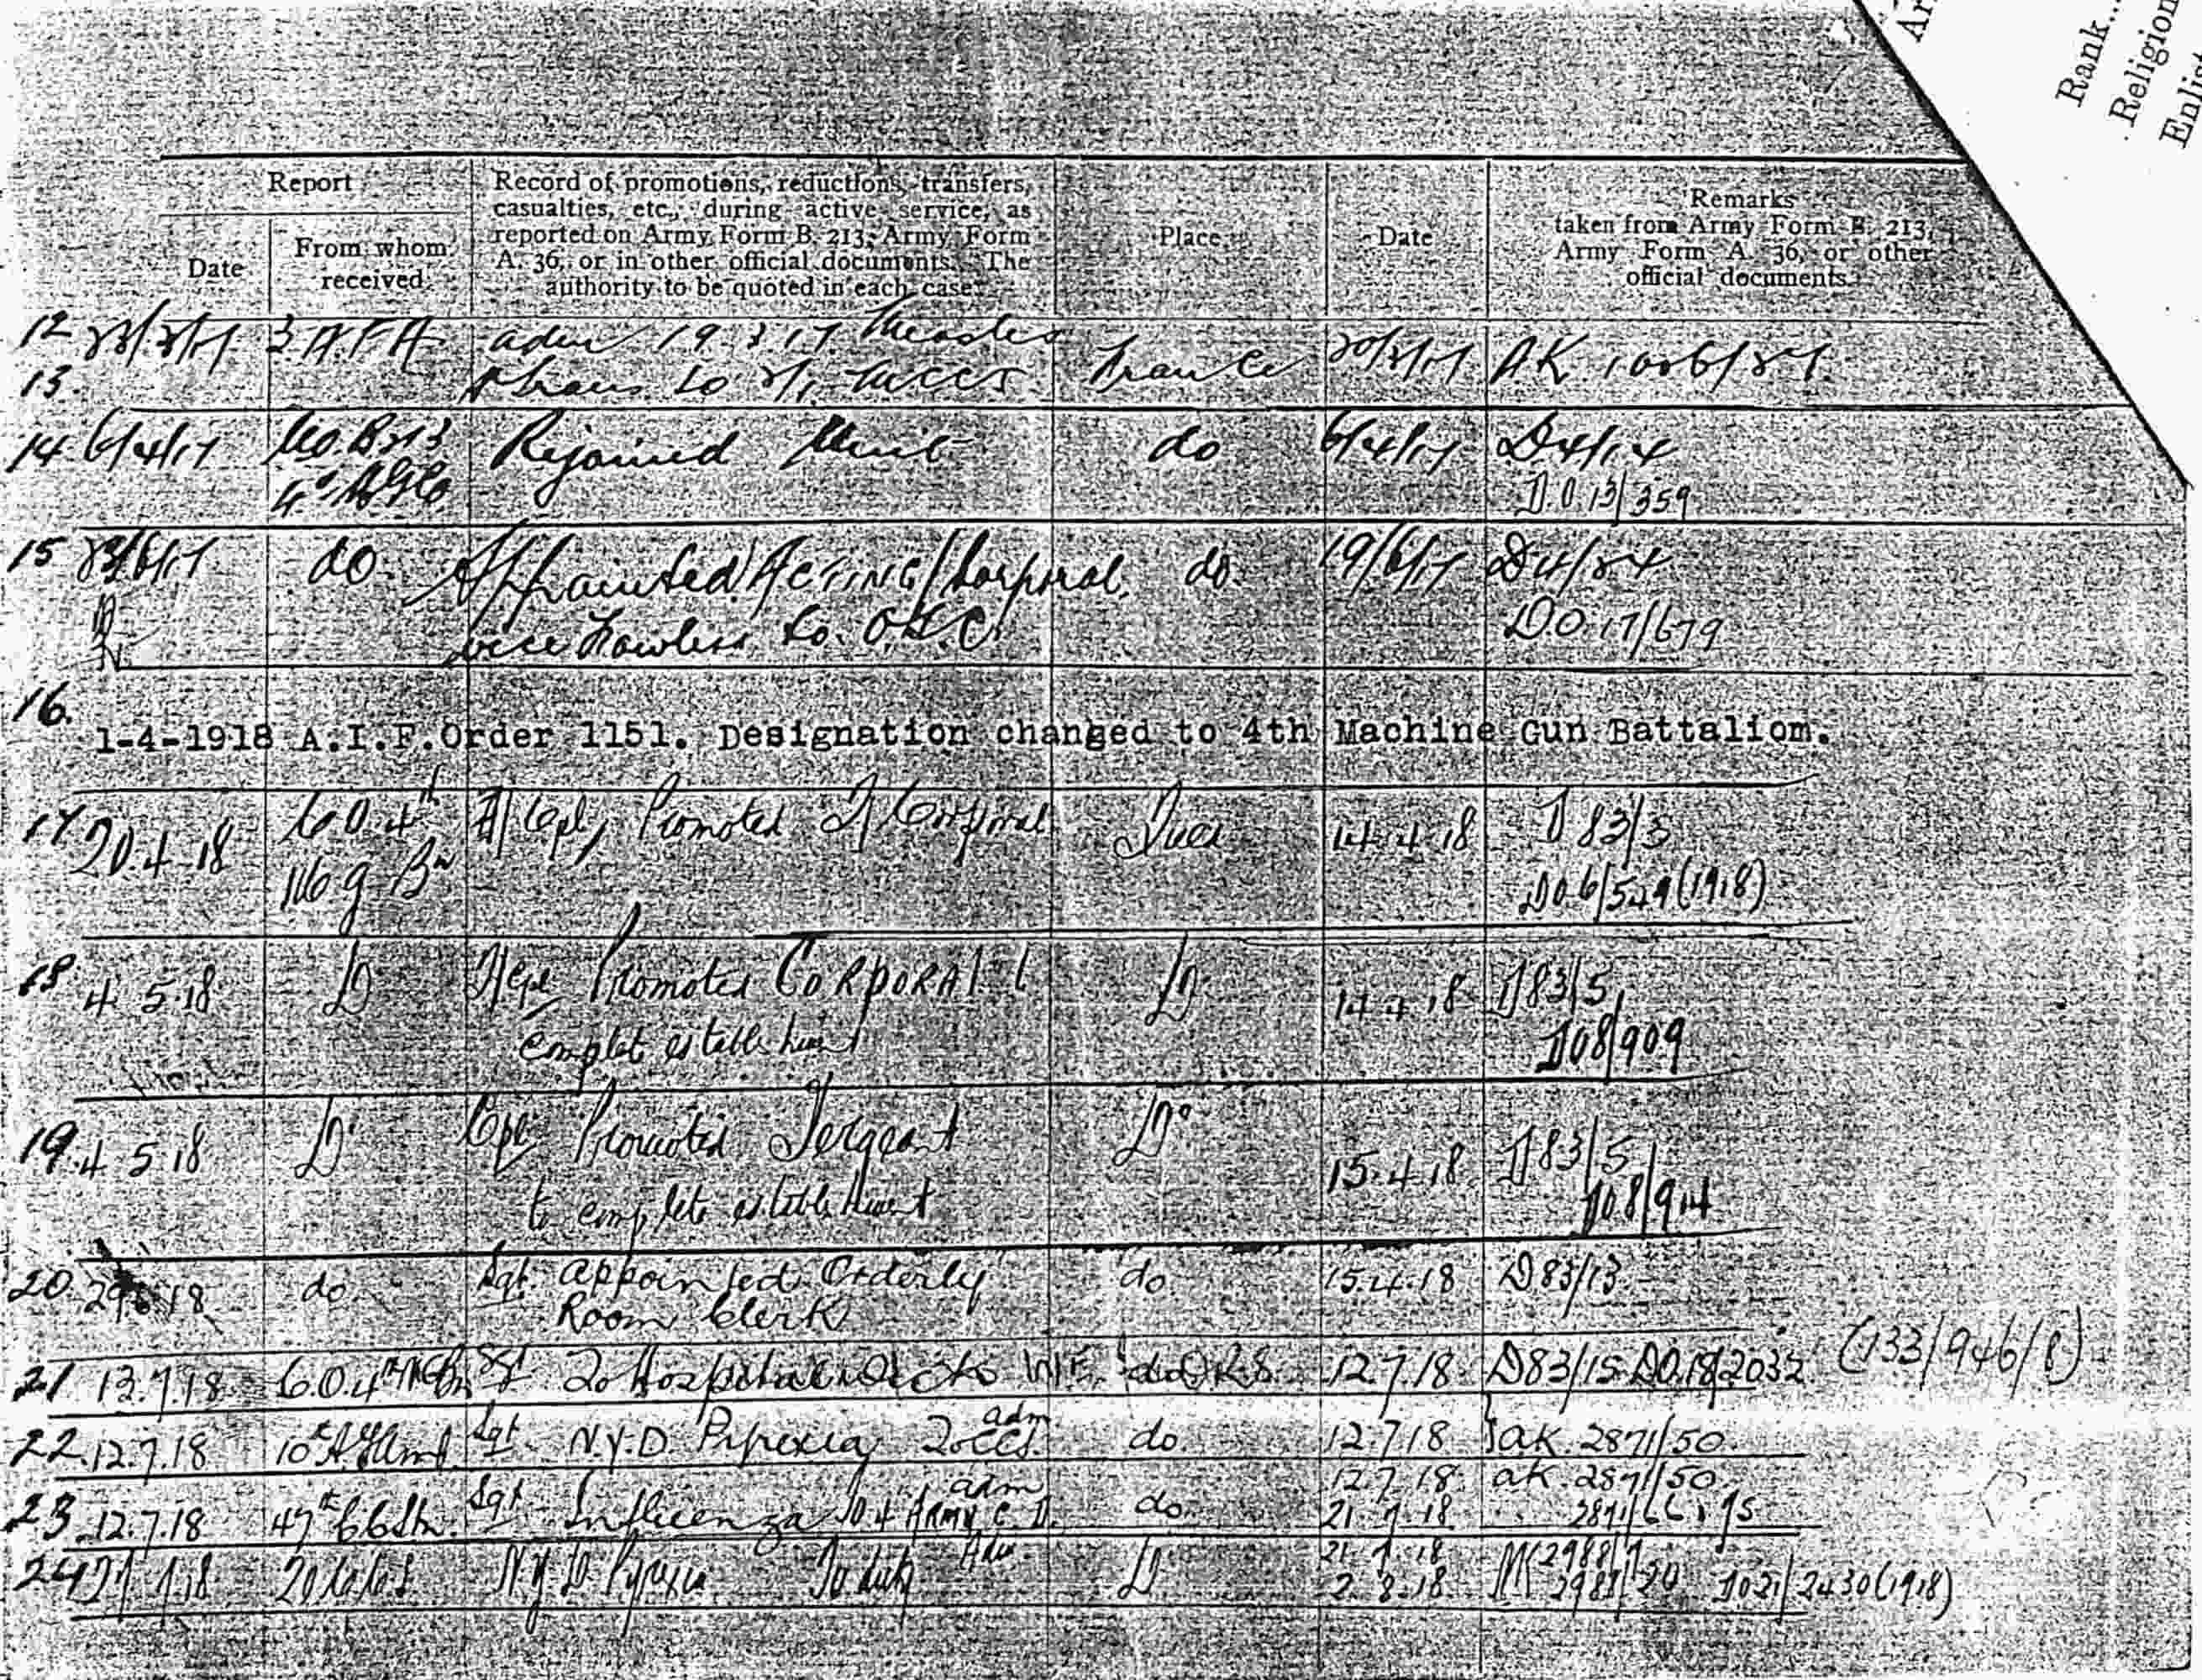 Rank...
Religion
Enlist
Report
Date
From whom received
Record of promotions, reductions, transfers,
casualties, etc., during active service, as
reported on Army Form B. 213, Army Form
A. 36, or in other official documents. The
authority to be quoted in each case.
Place
Date
Remarks
taken from Army Form B. 213,
Army Form A. 36, or other
official documents.
12 3 A.F.A adm 19.3.17 Measles
13. trans to France
14. 6/4/17 Rejoined Unit do 6/4/17 D4/14
D.O.13/359
15 23/6/17 do Appointed ACTING/Corporal do 19/6/17 D4/24
vice Lawless to D.O.17/679
16.
1-4-1918 A.I.F.Order 1151. Designation changed to 4th Machine Gun Battaliom.
17 20.4.18 C.O. 4th Cpl Promoted T/Corporal 14.4.18 D83/3
M G Bn DO.6/549(1918)
18 4.5.18 Do T/Cpl Promoted CORPORAL t Do 14.4.18 D83/5
complete establishment DO8/909
19. 4 5 18 Do Cpl Promoted Sergeant Do 15.4.18 D83/5
to complete establishment DO.8/914
20. 18 do Sgt. appointed Orderly do 15.4.18 D83/13
Room Clerk
21 13.7.18 C.O.4th MGBn Sgt To Hospital Sick do 12.7.18 D83/15 DO.18/2032 (133/946/8)
22. 12.7.18 10th Sgt N.Y.D. Pyrexia adm 20 CCS. do 12.7.18 AK.2871/50.
23. 12.7.18 47th CCStn. Sgt Influenza adm do 12.7.18 AK.2871/50
21.7.18 2871/66
24 Adm 21.7.18
N.Y.D. Pyrexia To duty Do 2.8.18 DO21/2430(1918)